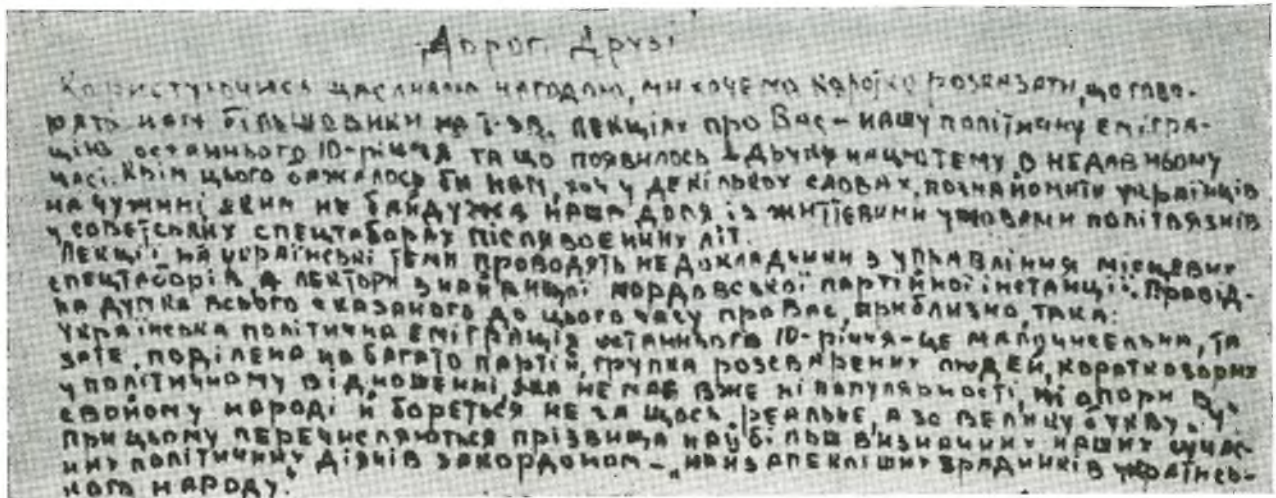 Дорог. Друзі
Користуючися щасливою нагодою, ми хочемо коротко розказати, що гово-
рять нам більшовики на т.зв. лекціях про Вас – нашу політичну емігра-
цію останнього 10-річчя та що появилось друку на цю тему в недавньому
часі. Крім цього бажалось би нам, хоч у декількох словах, познайомити українців
на чужині, яким не байдужа наша доля із життєвими умовами політвязнів
у совєтських спецтаборах післявоєнних літ.
Лекції на українські теми проводять не докладчики з управління місцевих
спецтаборів, а лектори з найвищої мордовської партійної інстанції. Провід-
на думка всього сказаного до цього часу про Вас, приблизно, така:
Українська політична еміграція останнього 10-річчя – це малочисельна, та
зате, поділена на багато партій, групка розсварених людей, короткозорих
у політичному відношенні, яка не має вже ні популярності, ні опори в
свойому народі й бореться не за щось реальне, а за велику букву "У".
При цьому перечисляються прізвища найбільш визначних наших сучас-
них політичних діячів закордоном – "найзапекліших зрадників українсь-
кого народу."